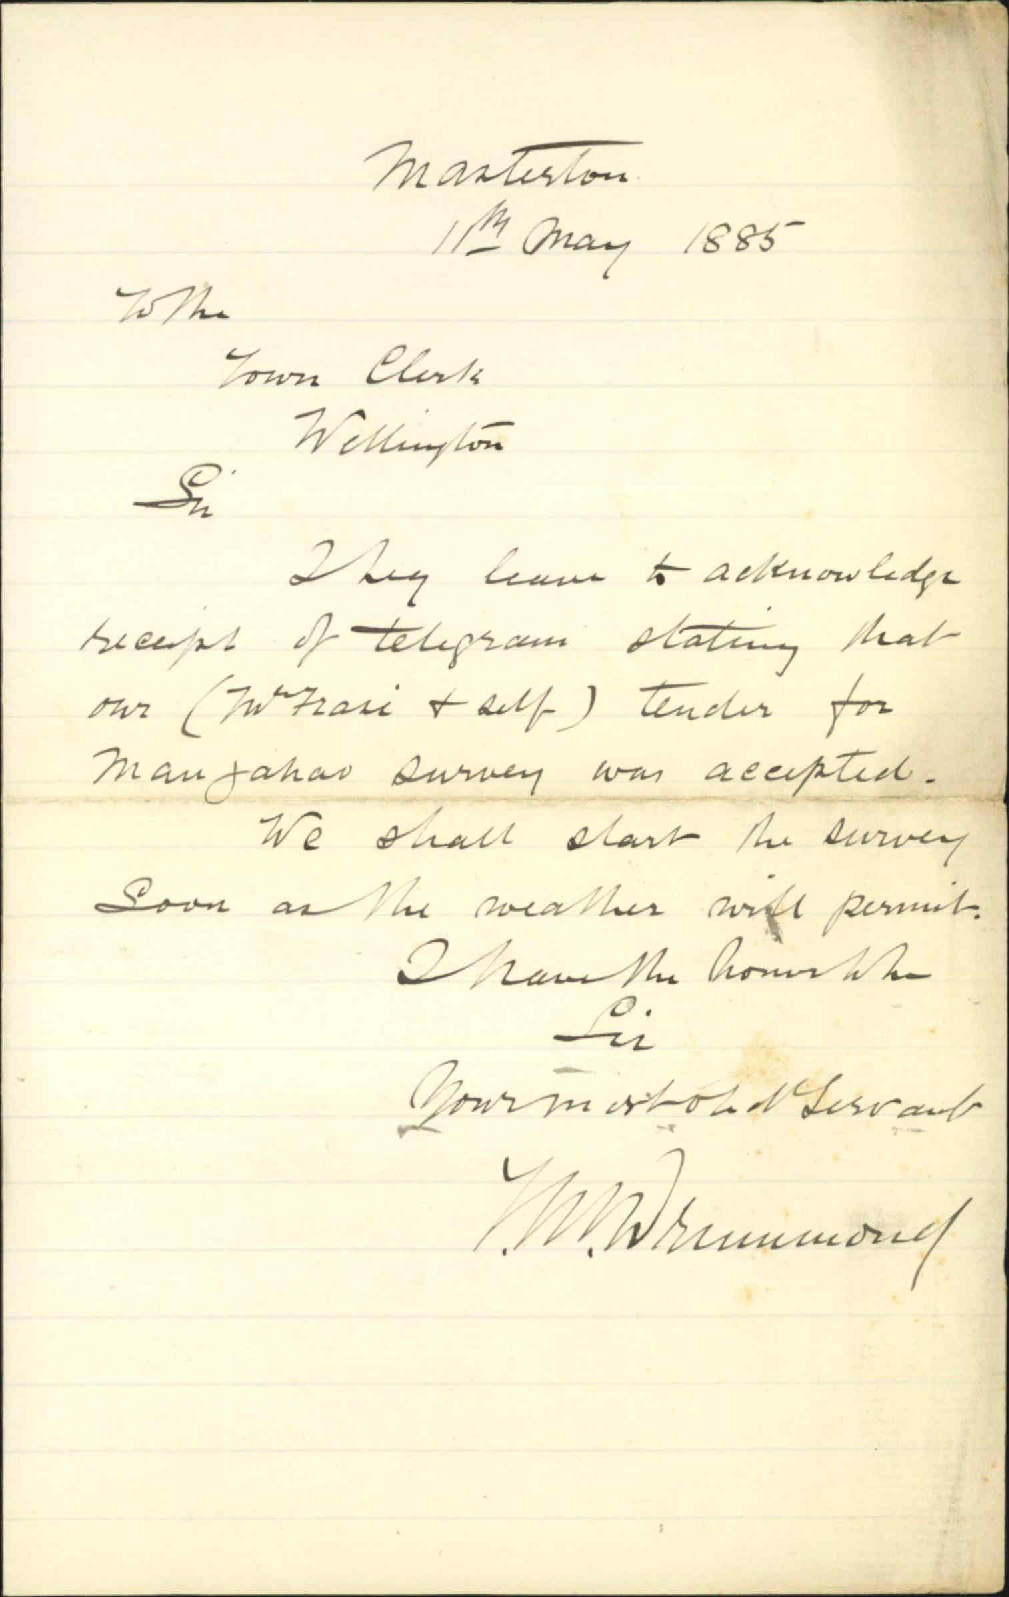 Masterton
11th May 1885
To the
Town Clerk
Wellington
Sir
I beg leave to acknowledge
receipt of telegram stating that
our (Mr & self) tender for
Mangahao survey was accepted.
We shall start the survey
Soon as the weather will permit.
I have the honor to be
Sir
Your most obdt Servant
T. M. Drummond